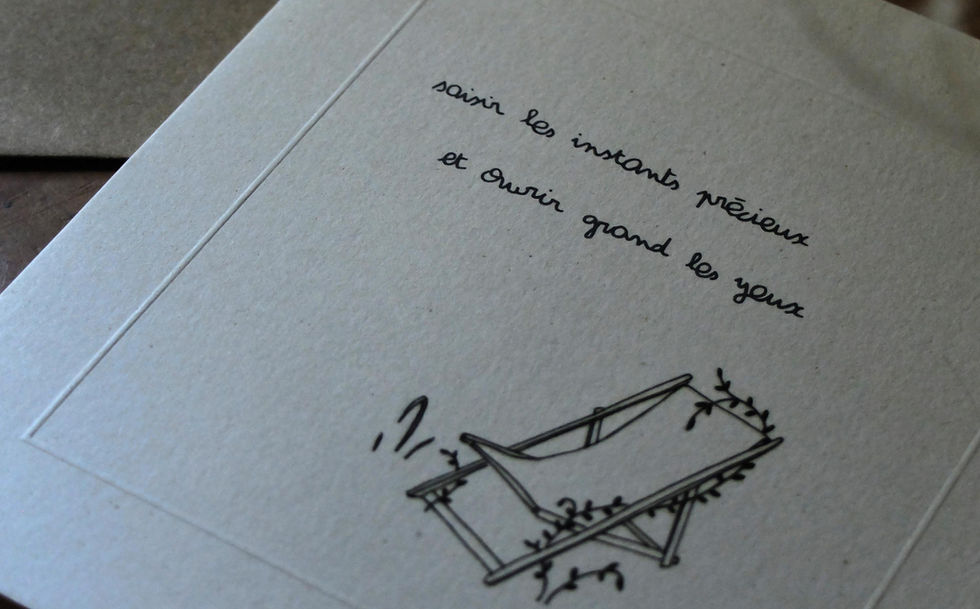 saisir les instants précieux
et ouvrir grand les yeux